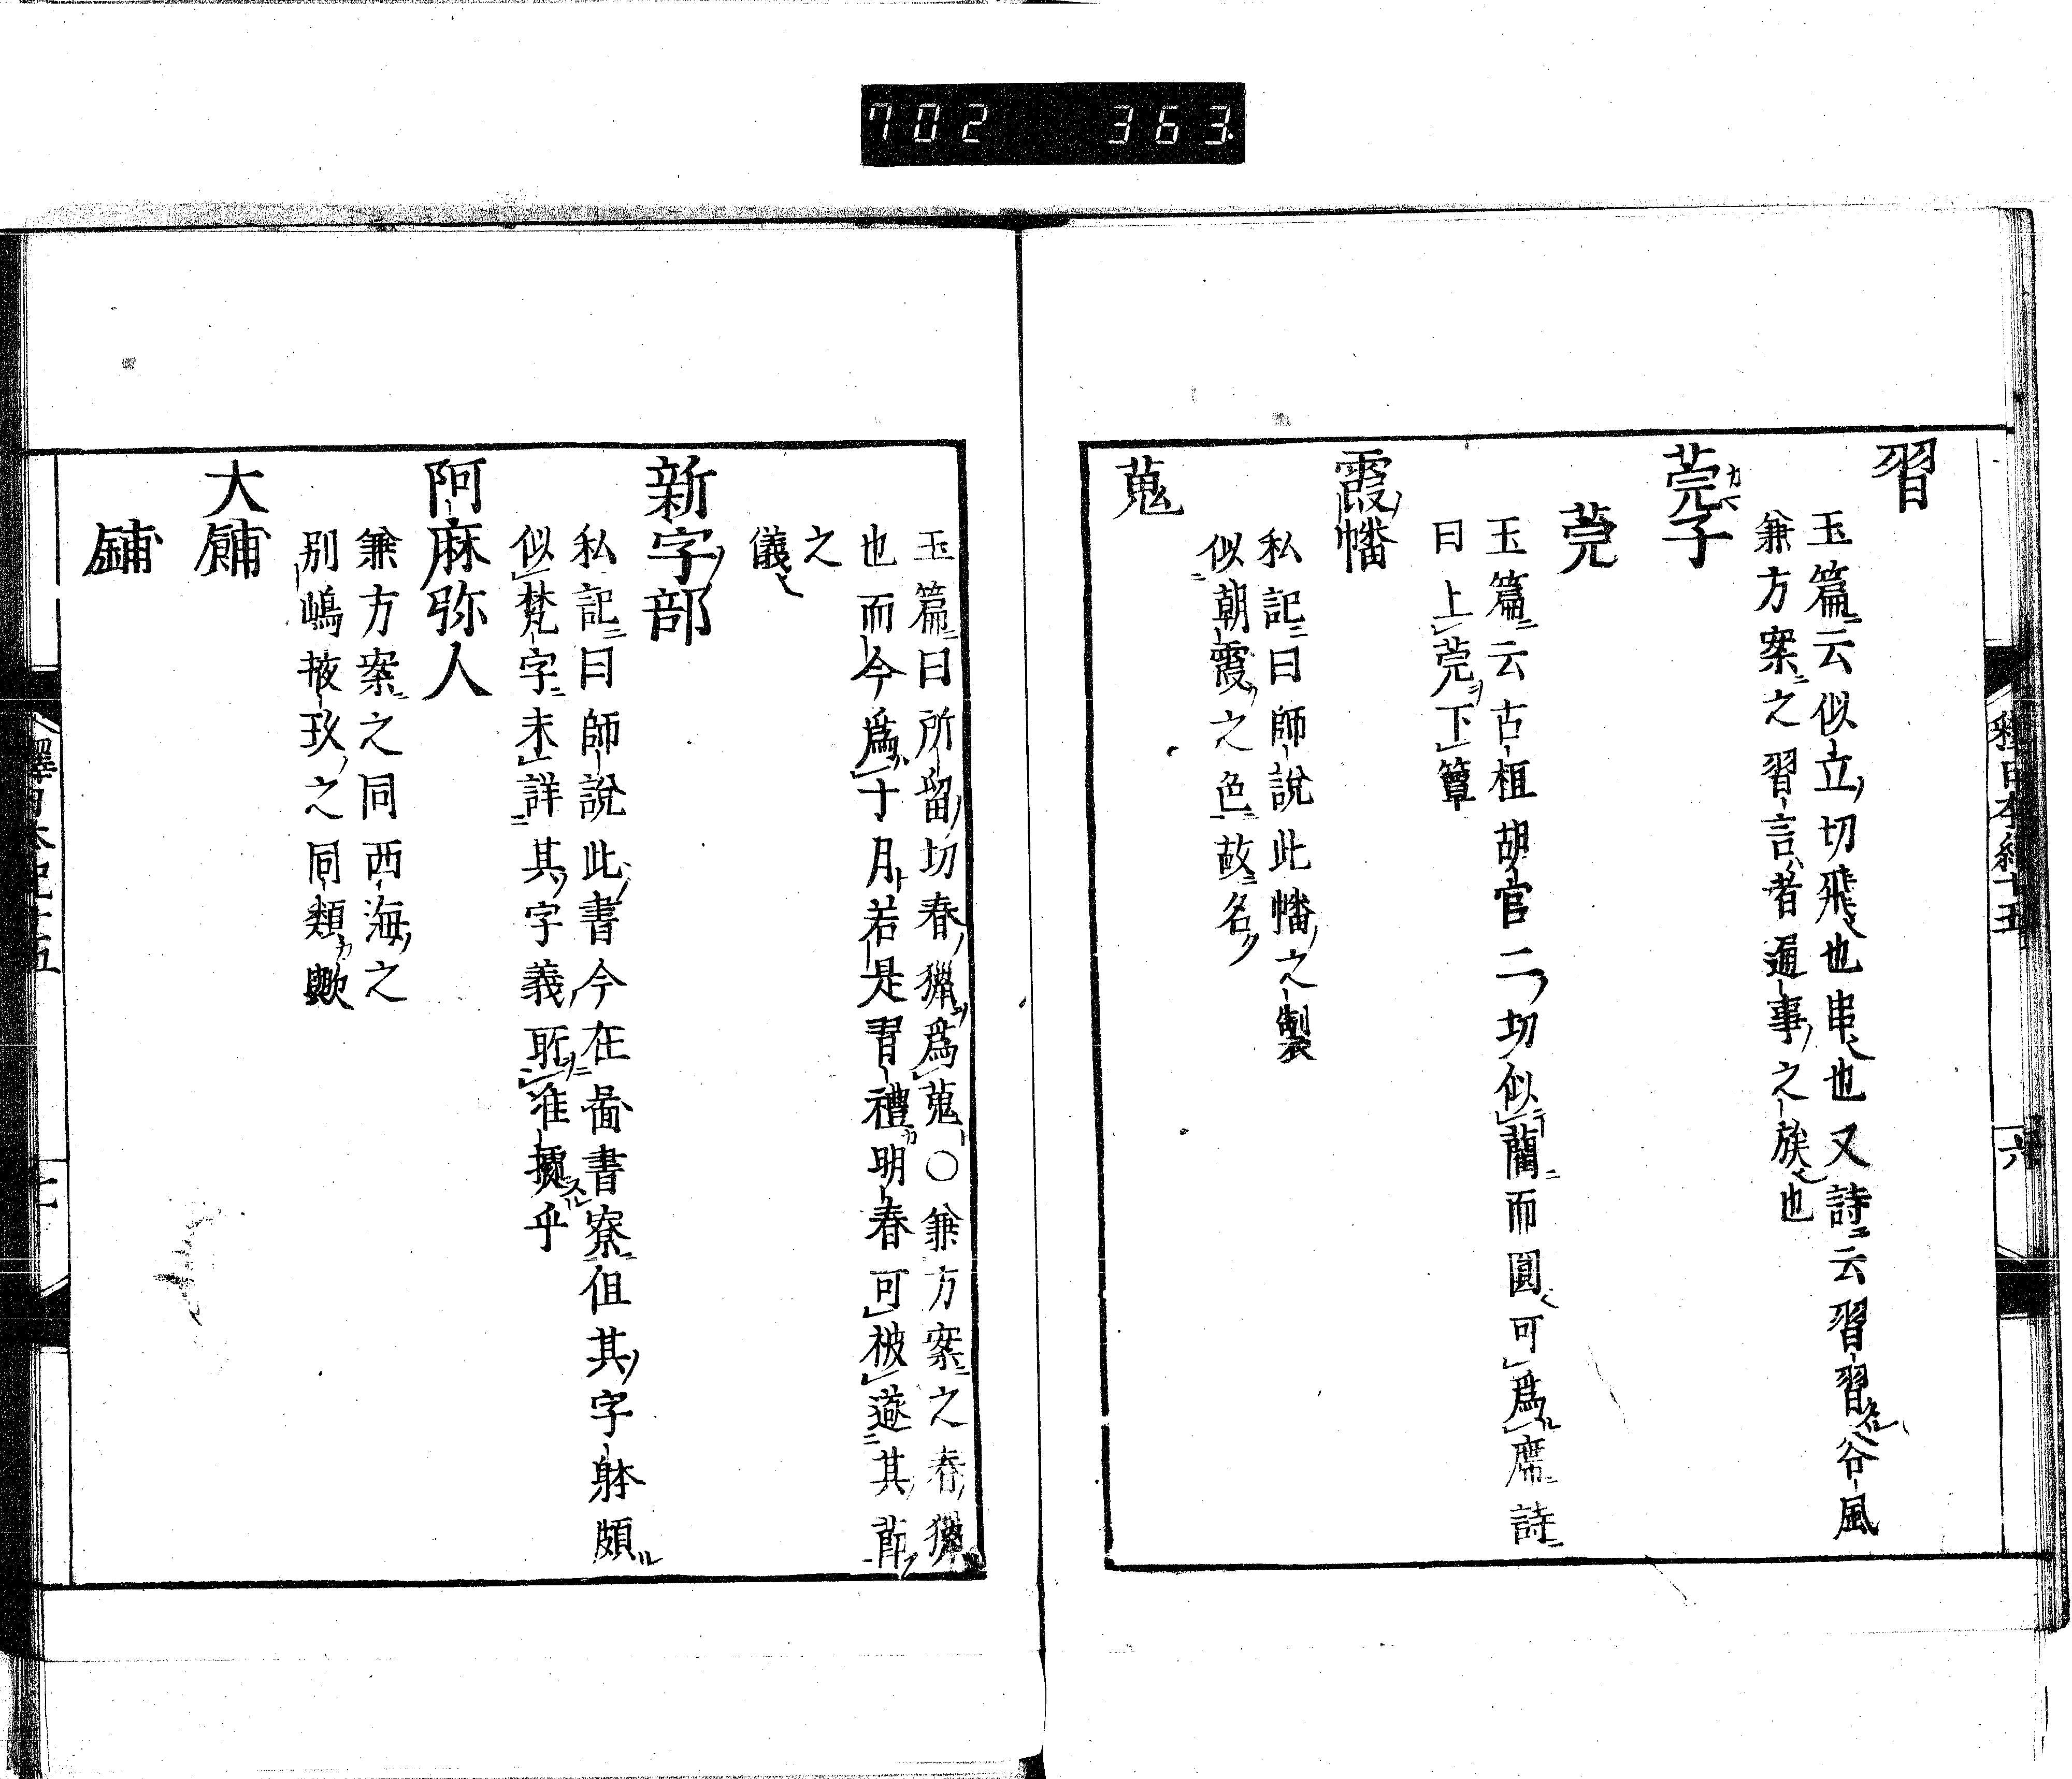 702 363
習
玉篇ニ云似立ノ切飛也串也又詩ニ云習習谷風
兼方案ニ之習言者通事之族也
莞子
莞
玉篇ニ云古桓胡官二ノ切似藺ニ而圓可為席詩ニ
曰上莞下簟
霞幡
私記ニ曰師說此幡之製
似朝霞之色故名
蒐
釋日本紀十五
六
玉篇ニ曰所留切春獵為蒐○兼方案ニ之春獵
也而今為十月若是胥禮明春可被遂其節
之
儀
新字部
私記ニ曰師說此書今在啚書寮但其字躰頗
似梵字未詳其字義所准據乎
阿麻弥人
兼方案ニ之同西海之
別嶋掖玖之同類歟
大䩉
䩉
釋日本紀十五
七